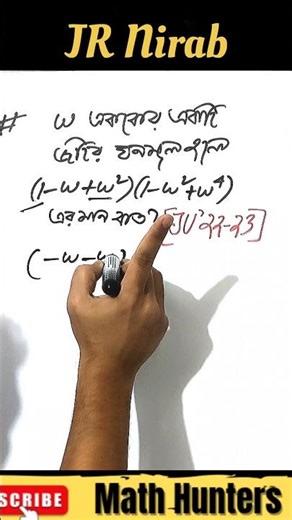 JR Nirab
# ω এককের একটি
জটিল ঘনমূল হলে
(1-ω+ω²)(1-ω²+ω⁴)
এর মান কত? [JU'22-23]
(-ω-ω
SCRIBE Math Hunters